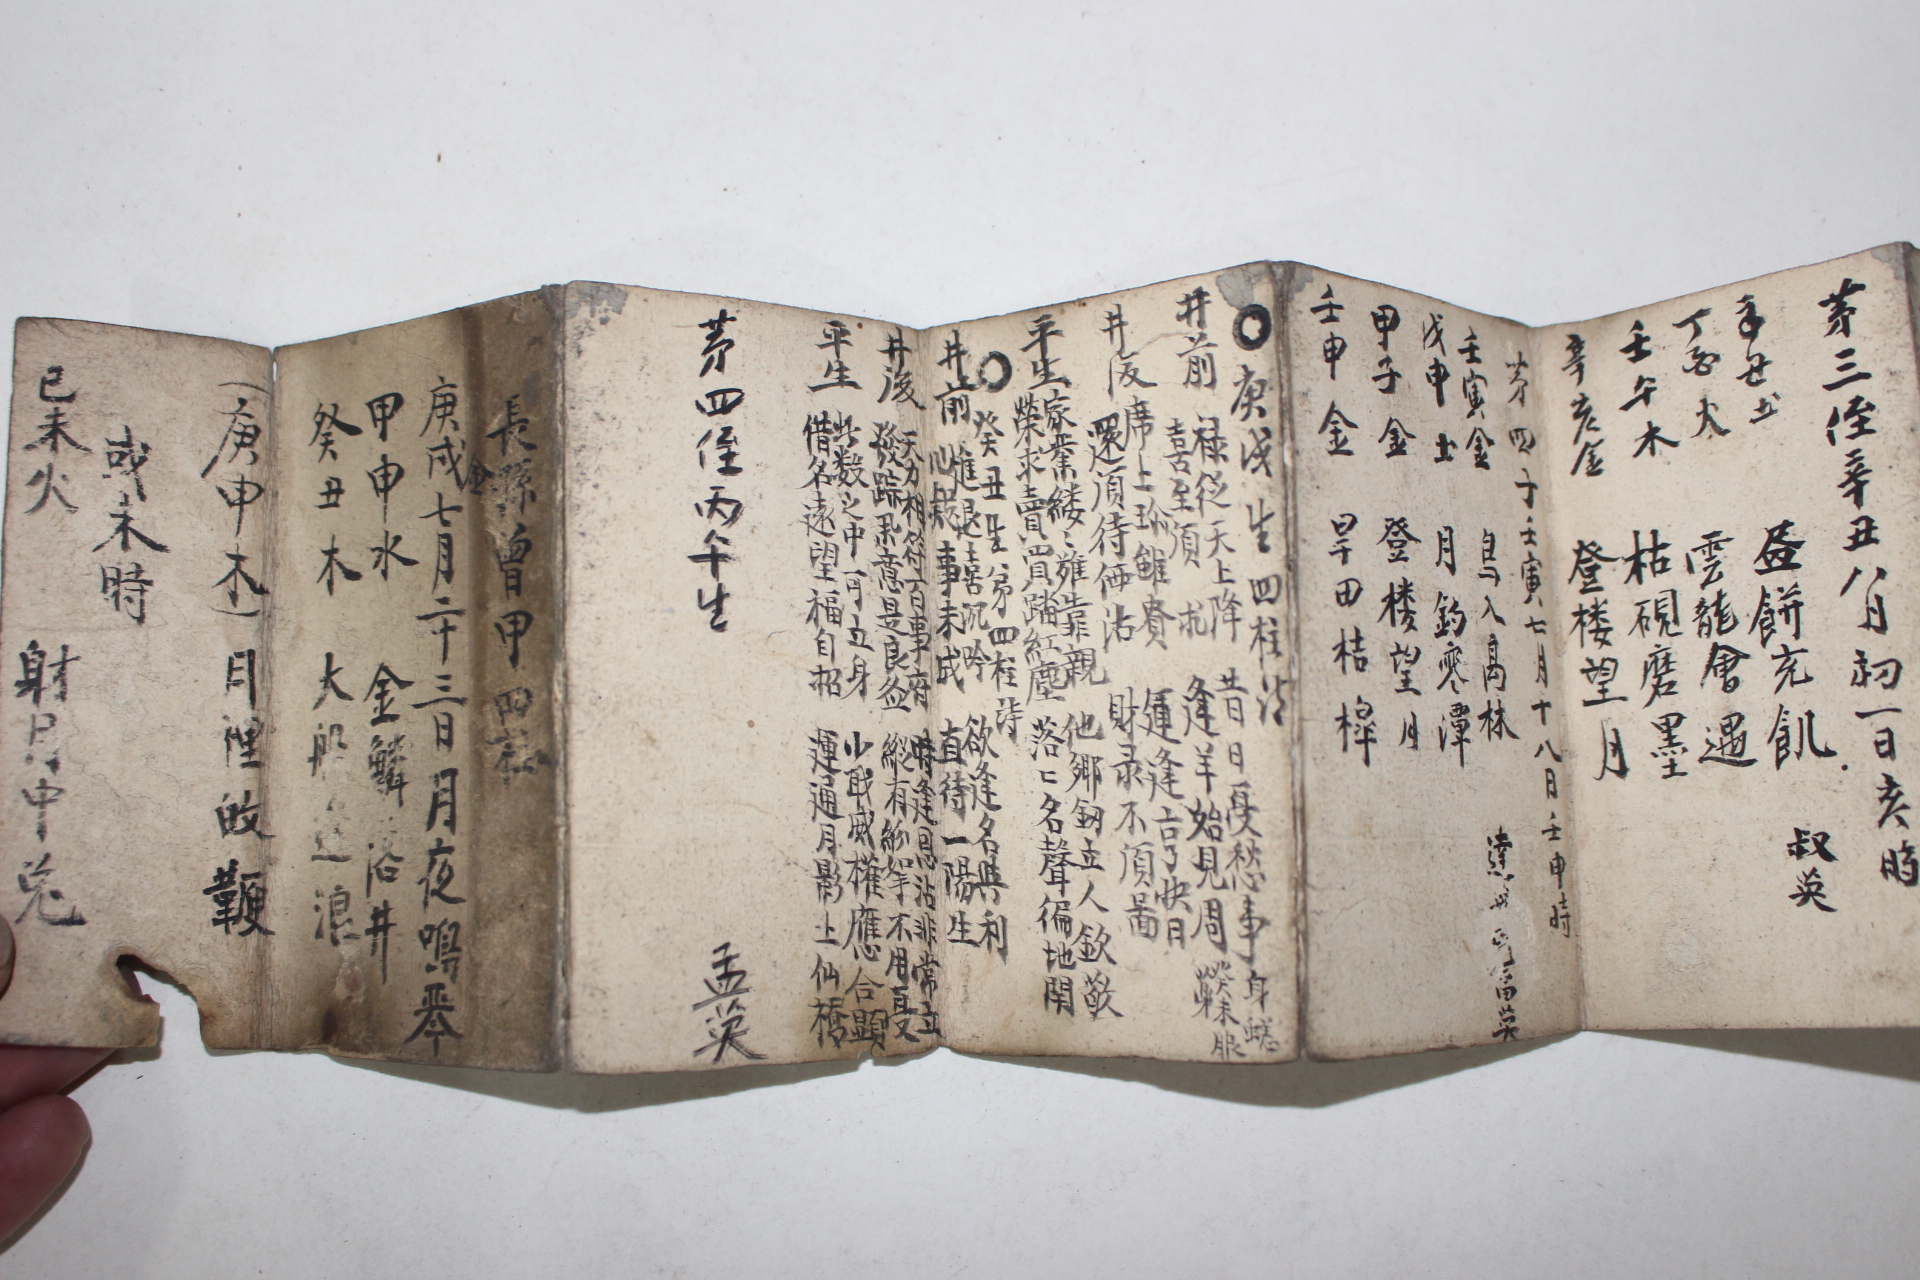 第三侄辛丑八月初一日亥時
辛丑土 畫餅充飢 叔英
丁酉火 雲龍會遇
壬午木 枯硯磨墨
辛亥金 登楼望月
第四子壬寅七月十八日壬申時
壬寅金 鳥入高林
戊申土 月釣寒潭
甲子金 登楼望月
壬申金 旱田桔槹
庚戌生四柱詩
井前 禄從天上降 昔日憂愁事
喜至須 逢羊始見周
井後 席上珍雖賚 運逢亨快日
還須待価沽 財录不須啚
平生 家業縷〻雖靠親 他鄉鈒立人欽敬
榮求賣買踏紅塵 落〻名聲徧地聞
癸丑生第四柱詩
井前 進退喜沉吟 欲逢名與利
心疑事未成 直待一陽生
井後 天力相符百事府 時逢恩沾非常立
發踪果意是良途 縱有紛爭不用憂
平生 此数之中可立身 小戢威權應合顯
借名遠望福自招 運通月影上仙橋
第四侄丙午生 孟英
長孫曾甲四柱
庚戌金七月二十三日月夜鳴琴
甲申水 金鱗落井
癸丑木 大船逆浪
(庚申木) 月裡敀鞭
或未時
己未火 射月中兎